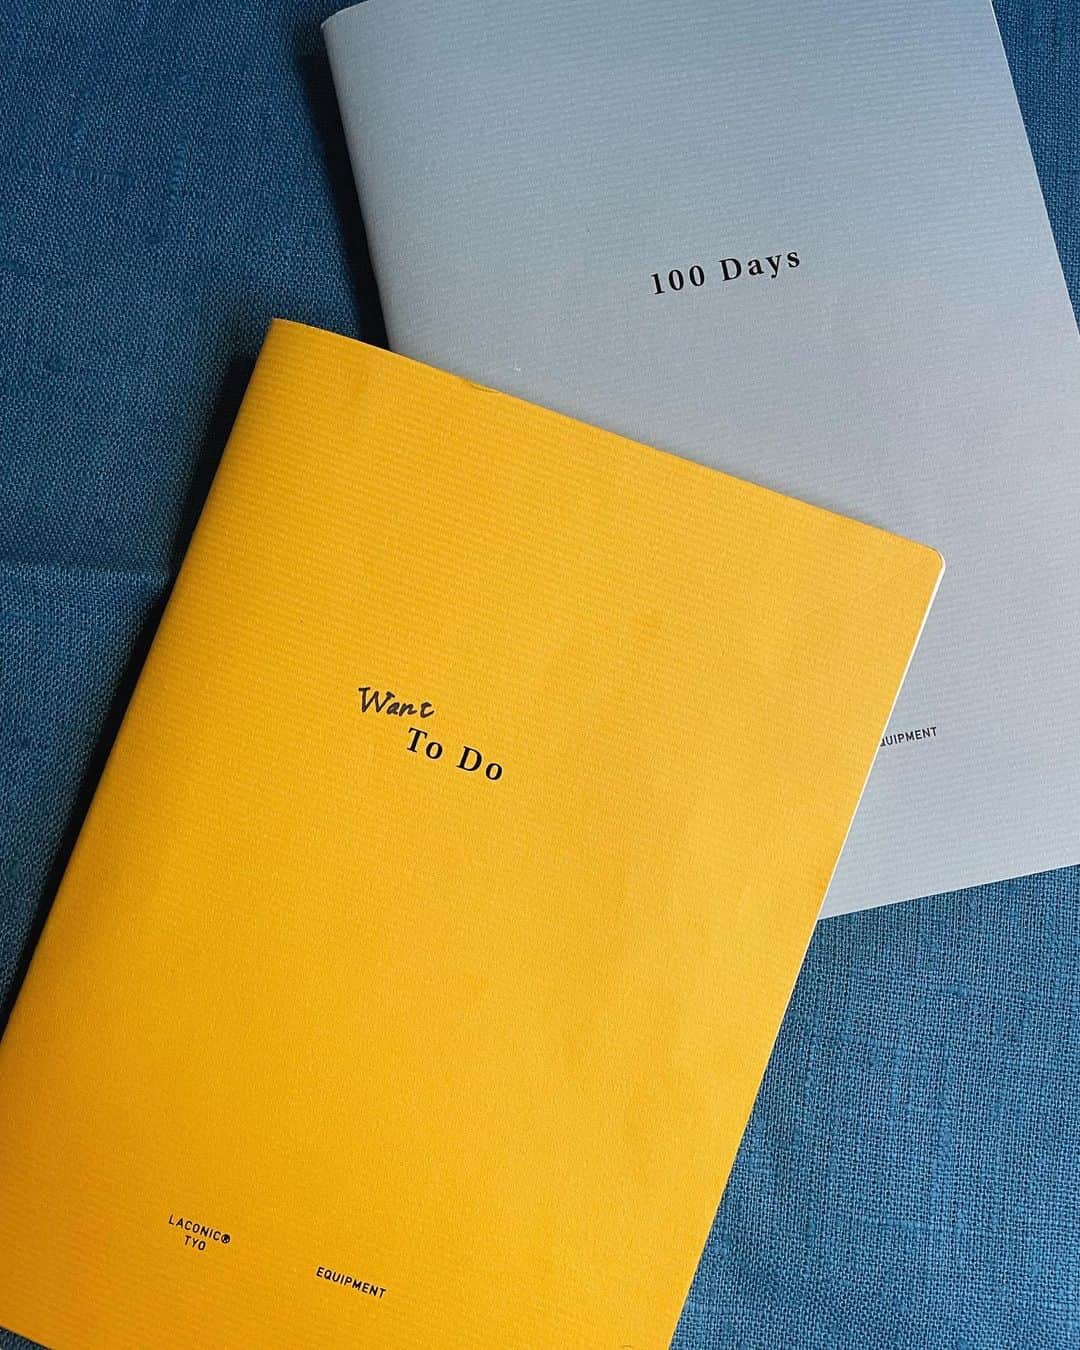 100 Days
Want
To Do
LACONIC®
TYO
EQUIPMENT